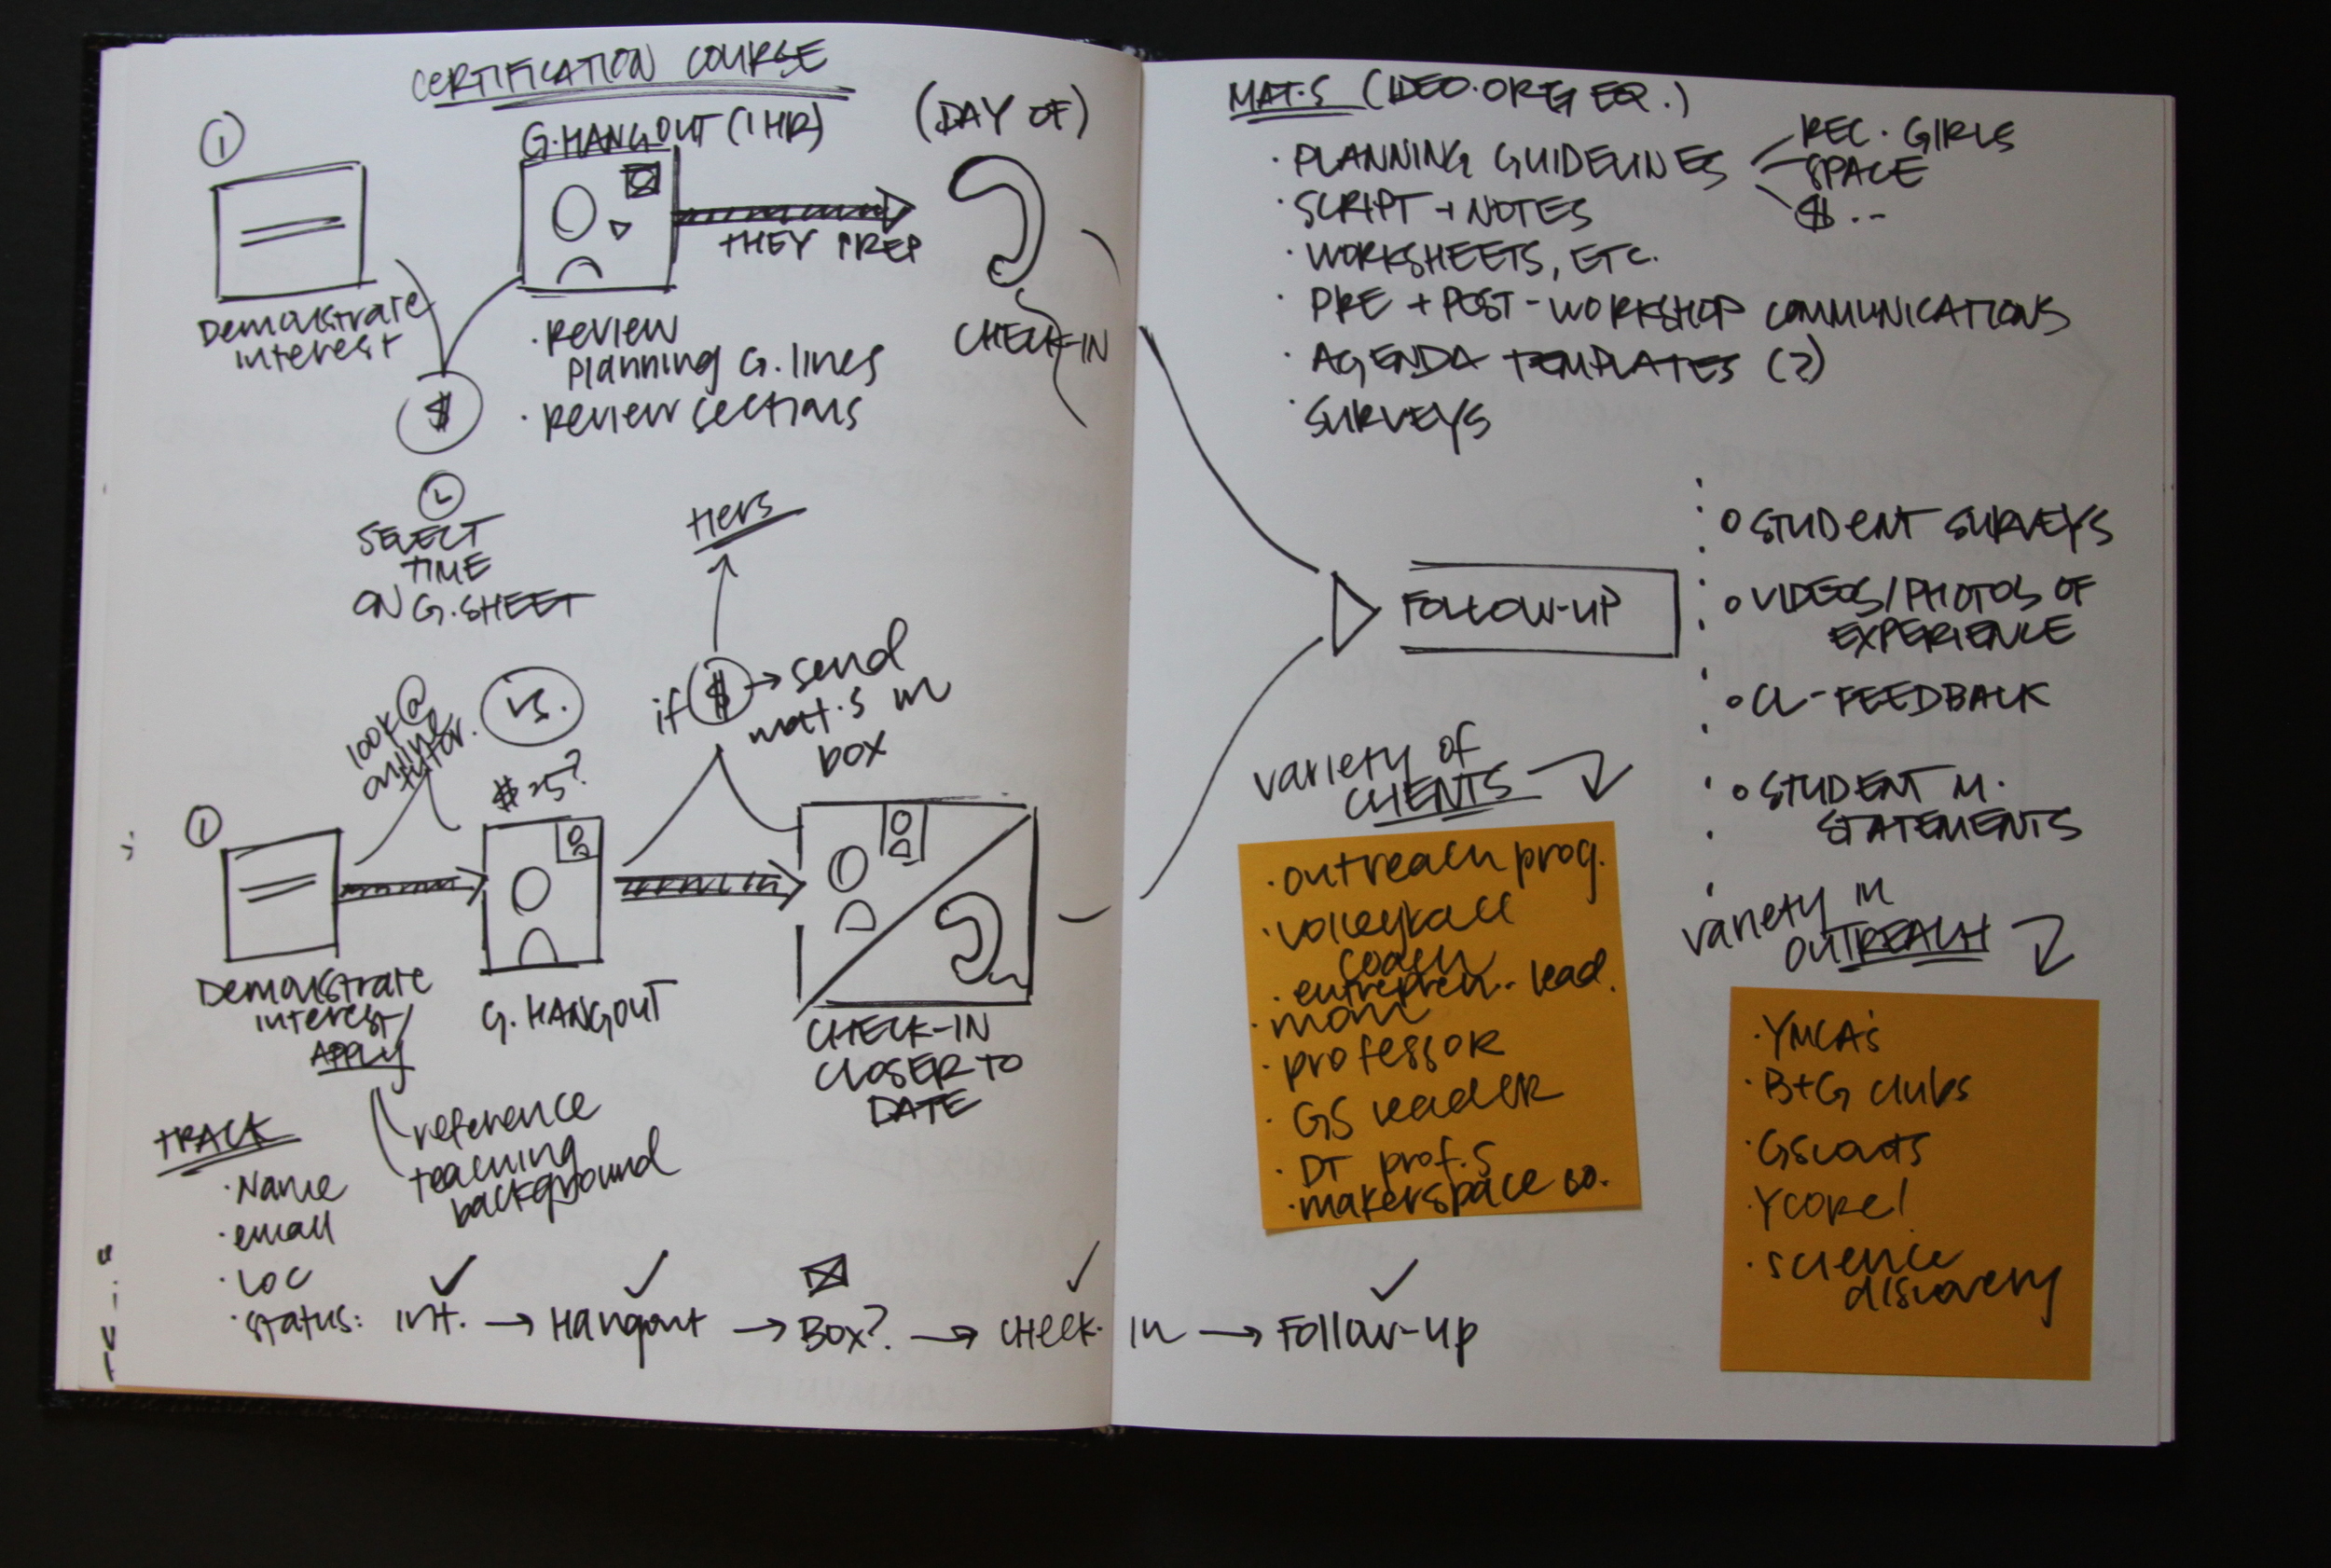 CERTIFICATION COURSE
1
G.HANGOUT (1 HR)
(DAY OF)
THEY PREP
Demonstrate
interest
· Review
planning G.lines
· Review sections
CHECK-IN
$
SELECT
TIME
ON G.SHEET
tiers
look @
online
tutor.
vs.
if $ → send
mat.s in
box
$25?
1
Demonstrate
interest/
APPLY
G. HANGOUT
CHECK-IN
CLOSER TO
DATE
reference
teaching
background
TRACK
· Name
· email
· Loc
· Status: Int. → Hangout → Box? → Check-in → Follow-up
MAT.S (IDEO.ORG EQ.)
· PLANNING GUIDELINES
REC. GIRLS
SPACE
$ ..
· SCRIPT + NOTES
· WORKSHEETS, ETC.
· PRE + POST-WORKSHOP COMMUNICATIONS
· AGENDA TEMPLATES (?)
· SURVEYS
FOLLOW-UP
STUDENT SURVEYS
VIDEOS/PHOTOS OF
EXPERIENCE
CL-FEEDBACK
STUDENT M.
STATEMENTS
variety of
CLIENTS
· outreach prog.
· volleyball
coach
· entrepren.. lead.
· mom
· professor
· GS leader
· DT prof.s
· makerspace co.
variety in
OUTREACH
· YMCA's
· B+G clubs
· GScouts
· YCORE!
· science
discovery